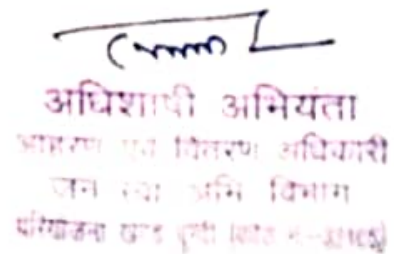 अधिशाषी अभियंता
आहरण एवं वितरण अधिकारी
जन स्वा अभि विभाग
परियोजना खण्ड बून्दी